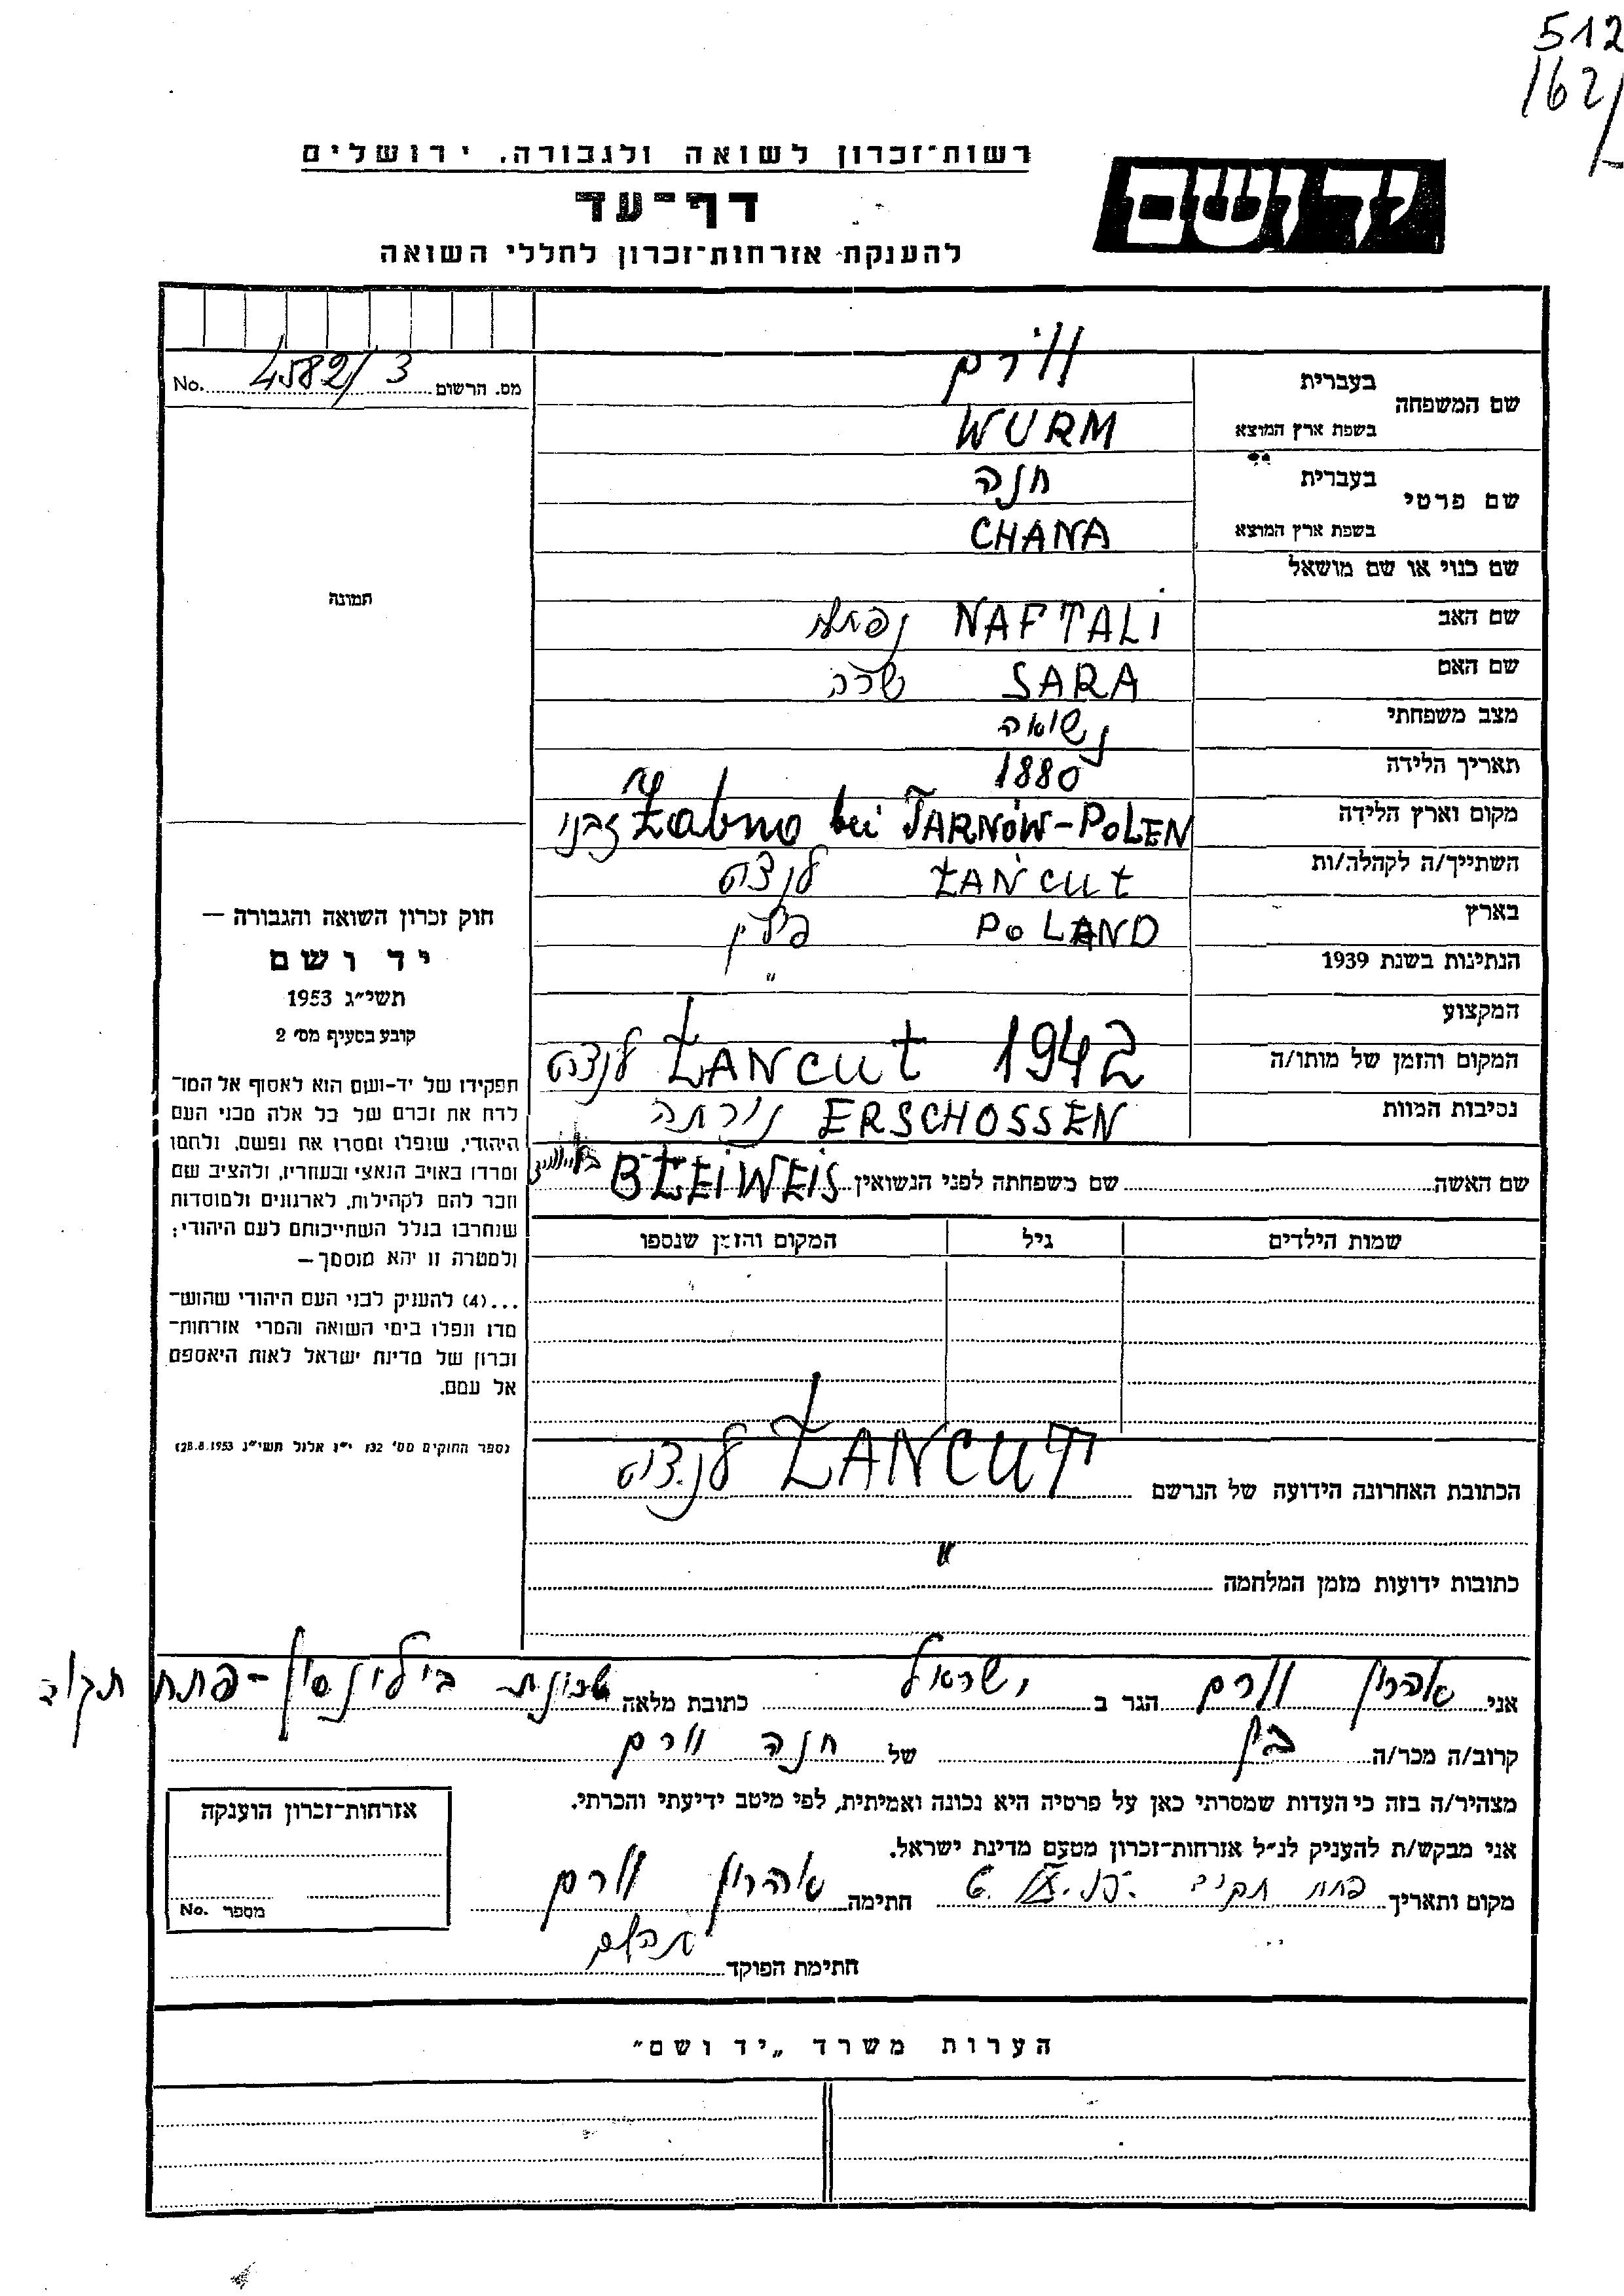 512
162/
רשות־זכרון לשואה ולגבורה, ירושלים
יד ושם
דף־עד
להענקת אזרחות־זכרון לחללי השואה
מס. הרשום 4582/3 No.
שם המשפחה בעברית וורם
בשפת ארץ המוצא WURM
שם פרטי בעברית חנה
בשפת ארץ המוצא CHANA
שם כנוי או שם מושאל
שם האב NAFTALI נפתלי
שם האם SARA שרה
מצב משפחתי נשואה
תאריך הלידה 1880
מקום וארץ הלידה Żabno bei TARNÓW-POLEN
השתייך/ה לקהלה/ות ŁAŃCUT לנצוט
בארץ POLAND פולין
הנתינות בשנת 1939 "
המקצוע
המקום והזמן של מותו/ה 1942 ŁANCUT לנצוט
נסיבות המוות ERSCHOSSEN נורתה
שם האשה שם משפחתה לפני הנשואין BLEIWEIS
שמות הילדים גיל המקום והזמן שנספו
הכתובת האחרונה הידועה של הנרשם ŁANCUT לנצוט
כתובות ידועות מזמן המלחמה "
תמונה
חוק זכרון השואה והגבורה —
יד ושם
תשי״ג 1953
קובע בסעיף מס׳ 2
תפקידו של יד-ושם הוא לאסוף אל המו־
לדת את זכרם של כל אלה מבני העם
היהודי, שנפלו ומסרו את נפשם, ולחמו
ומרדו באויב הנאצי ובעוזריו, ולהציב שם
וזכר להם לקהילות, לארגונים ולמוסדות
שנחרבו בגלל השתייכותם לעם היהודי;
ולמטרה זו יהא מוסמך —
...(4) להענין לבני העם היהודי שהוש־
מדו ונפלו בימי השואה והמרי אזרחות־
זכרון של מדינת ישראל לאות היאספם
אל עמם.
(ספר החוקים מס׳ 132 י״ז אלול תשי״ג 28.8.1953)
אני אהרון וורם הגר ב ישראל כתובת מלאה שכונת בילינסון - פתח תקוה
קרוב/ה מכר/ה בן של חנה וורם
מצהיר/ה בזה כי העדות שמסרתי כאן על פרטיה היא נכונה ואמיתית, לפי מיטב ידיעתי והכרתי.
אני מבקש/ת להעניק לנ״ל אזרחות־זכרון מטעם מדינת ישראל.
מקום ותאריך פתח תקוה חתימה אהרון וורם
חתימת הפוקד
אזרחות־זכרון הוענקה
מספר No.
הערות משרד „יד ושם״